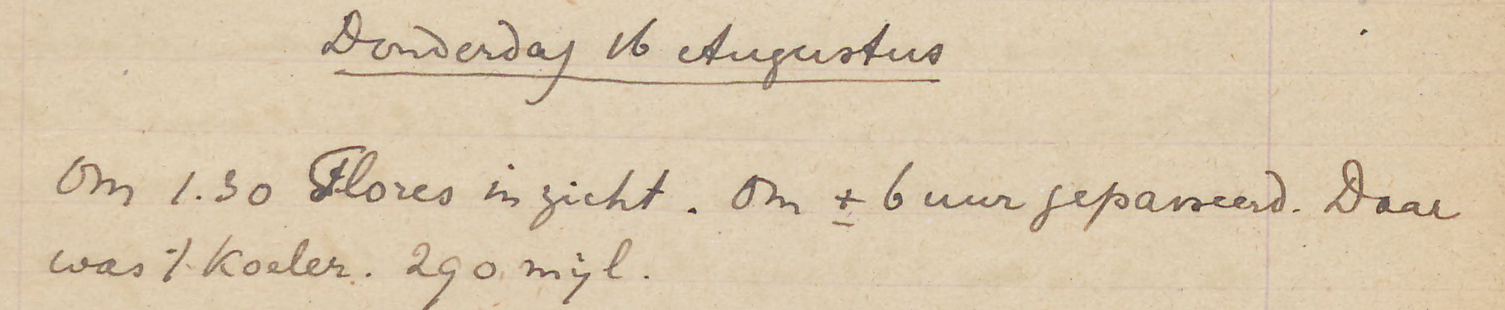 Donderdag 16 Augustus
Om 1.30 Flores in zicht. Om ± 6 uur gepasseerd. Daar
was 't koeler. 290 mijl.